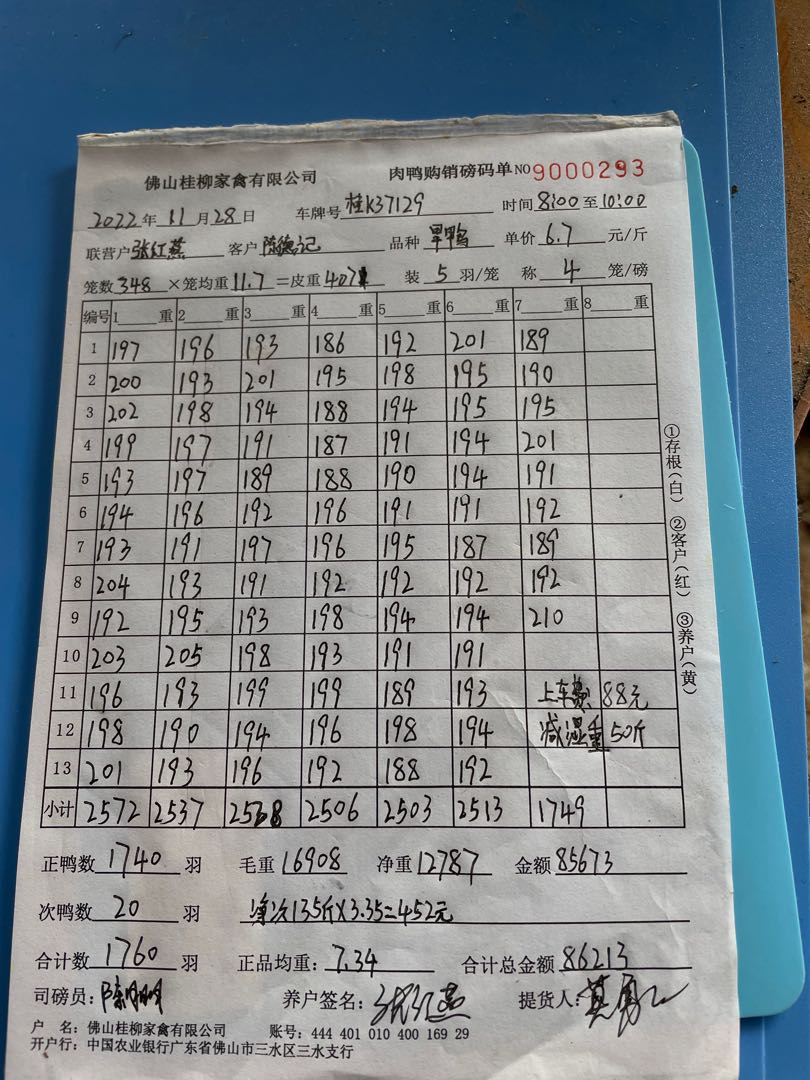 佛山桂柳家禽有限公司 肉鸭购销磅码单 NO 9000293
2022年11月28日 车牌号 桂K37129 时间 8:00至10:00
联营户 张红燕 客户 陈德记 品种 旱鸭 单价 6.7 元/斤
笼数 348 ×笼均重 11.7 =皮重 4071 装 5 羽/笼 称 4 笼/磅
编号 1 重 2 重 3 重 4 重 5 重 6 重 7 重 8 重
1 197 196 193 186 192 201 189
2 200 193 201 195 198 195 190
3 202 198 194 188 194 195 195
4 199 197 191 187 191 194 201
5 193 197 189 188 190 194 191
6 194 196 192 196 191 191 192
7 193 191 197 196 195 187 189
8 204 193 191 192 192 192 192
9 192 195 193 198 194 194 210
10 203 205 198 193 191 191
11 196 193 199 199 189 193 上车费 88元
12 198 190 194 196 198 194 减湿重 50斤
13 201 193 196 192 188 192
小计 2572 2537 2528 2506 2503 2513 1749
正鸭数 1740 羽 毛重 16908 净重 12787 金额 85673
次鸭数 20 羽 次135斤×3.35=452元
合计数 1760 羽 正品均重: 7.34 合计总金额 86213
司磅员: 养户签名: 张红燕 提货人:
户 名: 佛山桂柳家禽有限公司 账号: 444 401 010 400 169 29
开户行: 中国农业银行广东省佛山市三水区三水支行
①存根(白) ②客户(红) ③养户(黄)